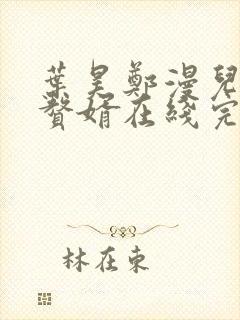 葉昊鄭漫兒
贅婿在綫完
林在東